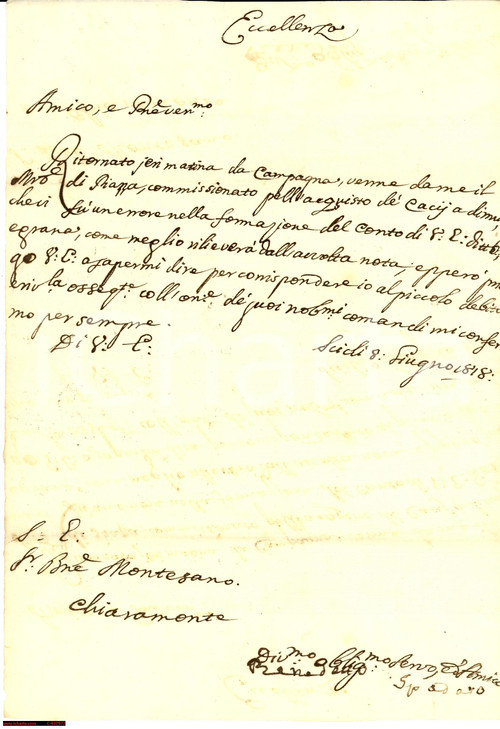 Eccellenza
Amico, e Pñe ven.mo
Ritornato jeri matina da Campagna, venne da me il
Mro di Piazza, commissionato pell'acquisto de' Cacij a dirmi,
che vi fù un errore nella formazione del Conto di V. E.
e grana, come meglio rileverà dall'accolta nota; epperò
go V. E. a sapermi dire per corrispondere io al piccolo
coll'on.e de' suoi nob.mi comandi mi
mo per sempre.
Di V. E.
Scicli 8: Giugno 1818:
S. E.
Sr. Bne Montesano.
Chiaramonte
Div.mo Obblig.mo Servo,
Benedetto Spadaro